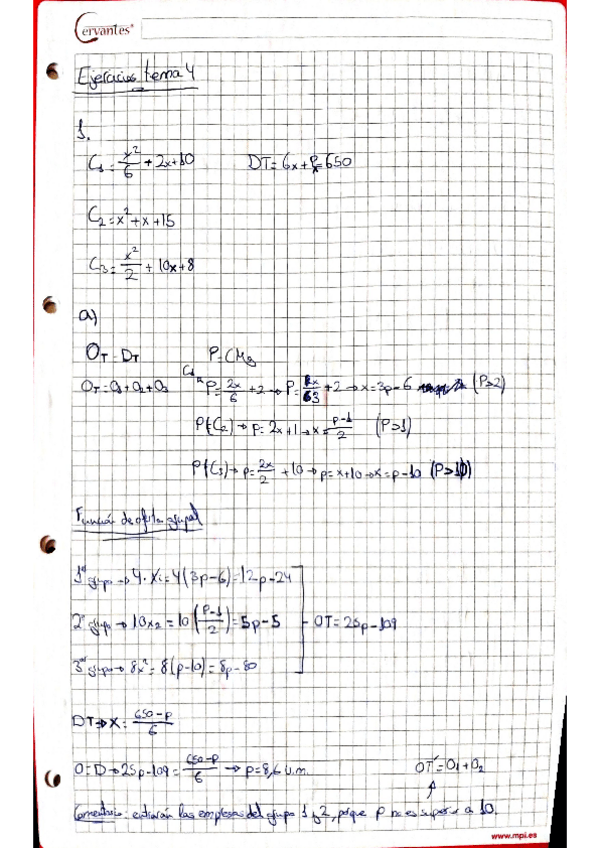 Cervantes®
Ejercicios tema 4
1.
C₁ = x²/6 + 2x + 10 DT = 6x + p = 650
C₂ = x² + x + 15
C₃ = x²/2 + 10x + 8
a)
OT = DT P = CMg
OT = O1 + O2 + O3 C1 → P = 2x/6 + 2 → P = x/3 + 2 → x = 3p - 6 (P>2)
P(C₂) → p = 2x + 1 → x = (p-1)/2 (P>1)
P(C₃) → p = 2x/2 + 10 → p = x + 10 → x = p - 10 (P>10)
Función de oferta grupal
1er grupo → 4·x₁ = 4(3p-6) = 12p - 24
2º grupo → 10x₂ = 10((p-1)/2) = 5p - 5 OT = 25p - 109
3er grupo → 8x² = 8(p-10) = 8p - 80
DT → x = (650-p)/6
O = D → 25p - 109 = (650-p)/6 → p = 8,6 u.m. OT' = O1 + O2
Comentario: entrarán las empresas del grupo 1 y 2, porque p no es superior a 10.
www.mpi.es